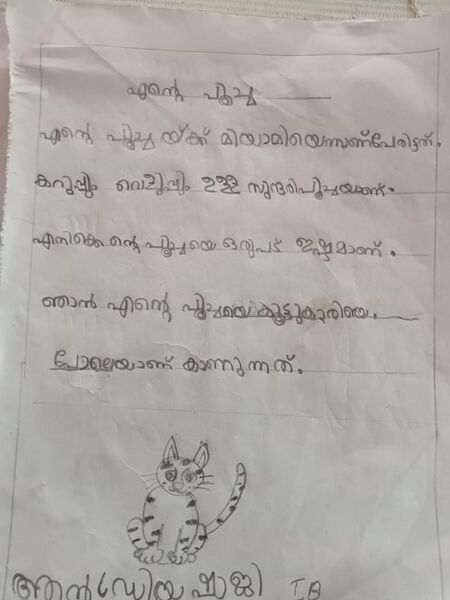 എന്റെ പൂച്ച
എന്റെ പൂച്ച യ്ക്ക് മിയാമിയെന്നണ്പേരിട്ടത്.
കറുപ്പും വെളുപ്പും ഉള്ള സുന്ദരിപൂച്ചയാണ്.
എനിക്കെന്റെപൂച്ചയെ ഒരുപട് ഇഷ്ടമാണ്.
ഞാൻ എന്റെ പൂച്ചയെകൂട്ടുകാരിയെ.
പോലെയാണ് കാണുന്നത്.
ആൻഡ്രിയ ഷാജി I B